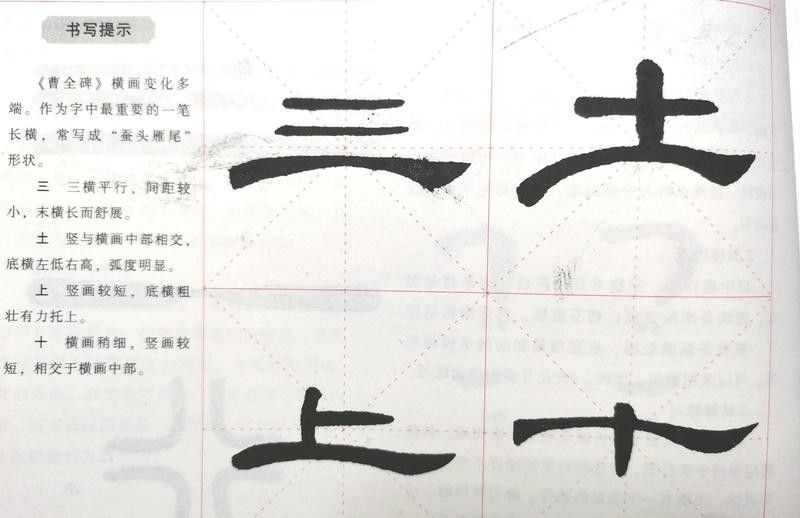 书写提示
《曹全碑》横画变化多
端。作为字中最重要的一笔
长横，常写成“蚕头雁尾”
形状。
三 三横平行，间距较
小，末横长而舒展。
土 竖与横画中部相交，
底横左低右高，弧度明显。
上 竖画较短，底横粗
壮有力托上。
十 横画稍细，竖画较
短，相交于横画中部。
三 土
上 十